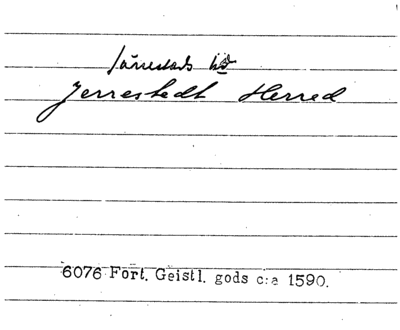 Järrestads hd
Jerrestedt Herred
6076 Fort. Geistl. gods c:a 1590.